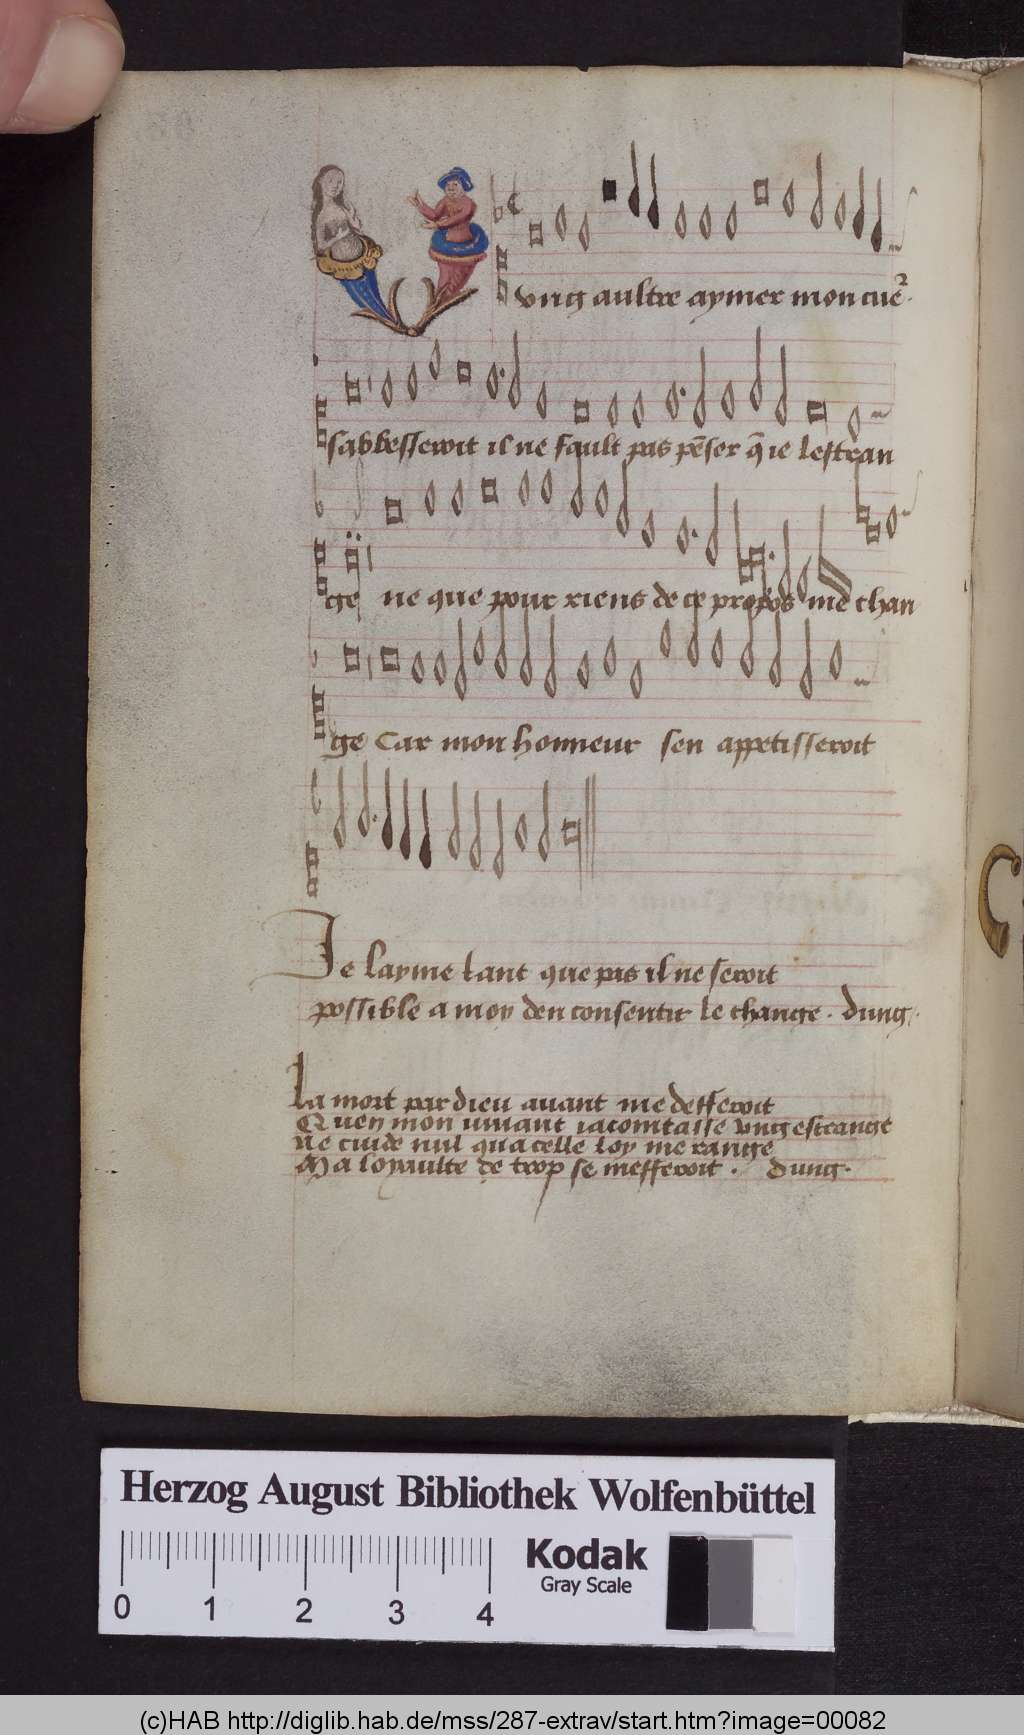 vng aultre aymer mon cue².
sabbesseroit il ne fault pas pēser q̄ ie lestran
ge ne que pour riens de ce propos me chan
ge Car mon honneur sen appetisseroit
Je layme tant que pas il ne seroit
possible a moy den consentir le change . dung.
La mort par dieu auant me defferoit
Quen mon uiuant iacointasse vng estrange
ne cuide nul qua celle loy me range
Ma loyaulte de trop se mefferoit . dung.
Herzog August Bibliothek Wolfenbüttel
Kodak
Gray Scale
0 1 2 3 4
(c)HAB http://diglib.hab.de/mss/287-extrav/start.htm?image=00082